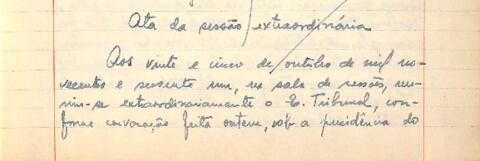 Ata da sessão extraordinária
Aos vinte e cinco de outubro de mil no-
vecentos e sessenta um, na sala de sessões, reu-
niu-se extraordinariamente o E. Tribunal, con-
forme convocação feita ontem, sob a presidência do